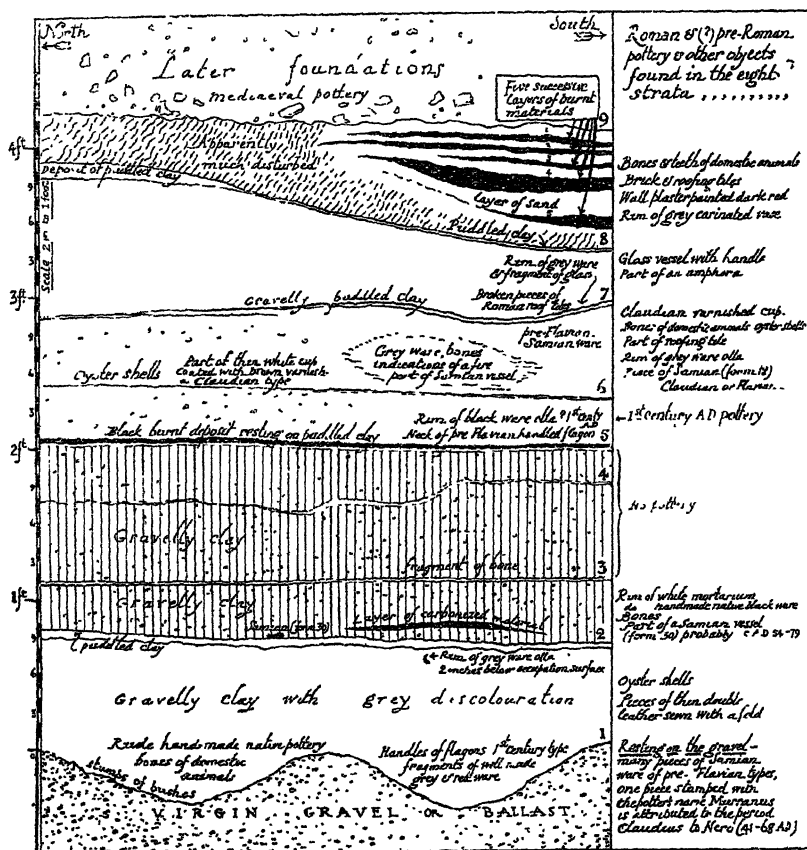 North
South
Later foundations
mediaeval pottery
Five successive
layers of burnt
materials
Apparently
much disturbed
Deposit of puddled clay
layer of sand
Puddled clay
Rim of grey ware
& fragment of glass
Broken pieces of
Roman roof tiles
Gravelly puddled clay
pre-Flavian
Samian ware
Oyster shells
Part of thin white cup
coated with brown varnish
a Claudian type
Grey ware, bones
indications of a fire
part of Samian vessel
Rim of black ware olla ? 1st Centy
A.D
Black burnt deposit resting on puddled clay
Neck of pre Flavian handled flagon
Gravelly clay
fragment of bone
Gravelly clay
Layer of carbonized material
puddled clay
Rim of grey ware olla
2 inches below occupation surface
Gravelly clay with grey discolouration
Rude hand made native pottery
bones of domestic
animals
Handles of flagons 1st century type
fragments of well made
grey & red ware
stumps of bushes
VIRGIN GRAVEL OR BALLAST
9
8
7
6
5
4
3
2
1
4ft
9
6
3
3ft
9
6
3
2ft
9
6
3
1ft
9
6
3
Scale 2 in to 1 foot
Roman & (?) pre-Roman
pottery & other objects
found in the eight
strata ..........
Bones & teeth of domestic animals
Brick & roofing tiles
Wall plaster painted dark red
Rim of grey carinated vase
Glass vessel with handle
Part of an amphora
Claudian varnished cup.
Bones of domestic animals oyster shells
Part of roofing tile
Rim of grey ware olla
Piece of Samian (form 18)
Claudian or Flavian
1st century AD pottery
No pottery
Rim of white mortarium
do handmade native black ware
Bones
Part of a Samian vessel
(form 30) probably A.D 54-79
Oyster shells
Pieces of thin double
leather sewn with a fold
Resting on the gravel -
many pieces of Samian
ware of pre-Flavian types,
one piece stamped with
the potter's name Murranus
is attributed to the period
Claudius to Nero (41-68 AD)